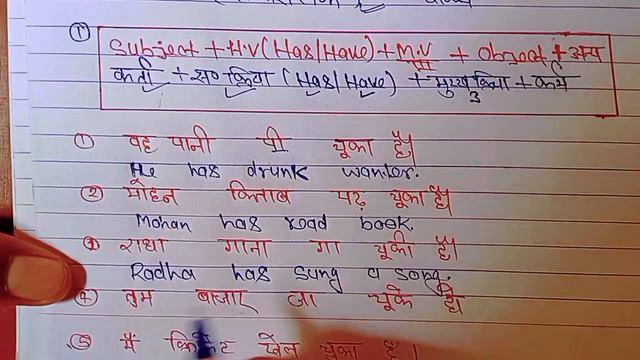 ① Subject + H.V (Has/Have) + M.V + Object + अन्य
III
कर्ता + स० क्रिया (Has/Have) + मुख्य क्रिया + कर्म
3
① वह पानी पी चूका है।
He has drunk wanter.
② मोहन किताब पढ़ चूका है।
Mohan has road book.
③ राधा गाना गा चूकी है।
Radha has sung a song.
④ तुम बाजार जा चूके हो
⑤ मैं क्रिकेट खेल चूका हूँ।